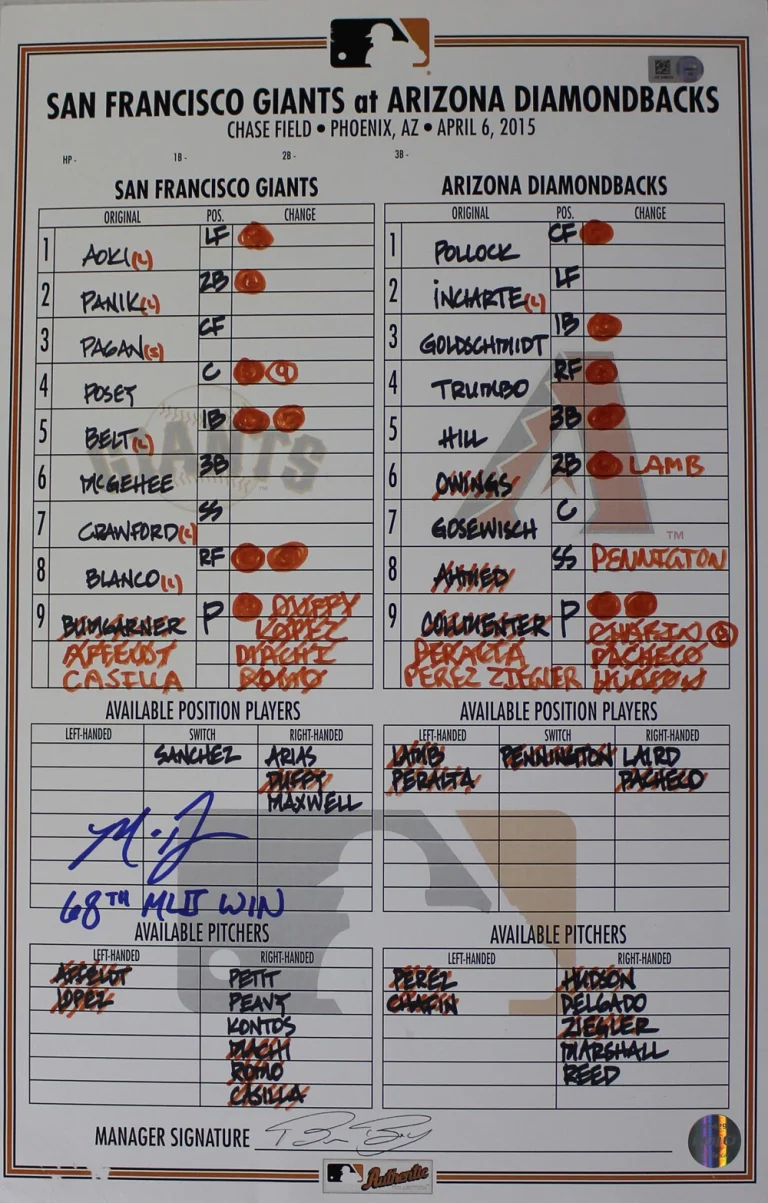 SAN FRANCISCO GIANTS at ARIZONA DIAMONDBACKS
CHASE FIELD • PHOENIX, AZ • APRIL 6, 2015
HP - 1B - 2B - 3B -
SAN FRANCISCO GIANTS
ORIGINAL POS. CHANGE
1 AOKI (L) LF
2 PANIK (L) 2B
3 PAGAN (S) CF
4 POSEY C 9
5 BELT (L) 1B
6 MCGEHEE 3B
7 CRAWFORD (L) SS
8 BLANCO (L) RF
9 BUMGARNER P DUFFY
LOPEZ
AFFELDT MACHI
CASILLA ROMO
GIANTS
ARIZONA DIAMONDBACKS
ORIGINAL POS. CHANGE
1 POLLOCK CF
2 INCIARTE (L) LF
3 GOLDSCHMIDT 1B
4 TRUMBO RF
5 HILL 3B
6 OWINGS 2B LAMB
7 GOSEWISCH C
TM
8 AHMED SS PENNINGTON
9 COLLMENTER P
CHAFIN
PERALTA PACHECO
PEREZ ZIEGLER HUDSON
AVAILABLE POSITION PLAYERS
LEFT-HANDED SWITCH RIGHT-HANDED
SANCHEZ ARIAS
DUFFY
MAXWELL
68TH MLB WIN
AVAILABLE POSITION PLAYERS
LEFT-HANDED SWITCH RIGHT-HANDED
LAMB PENNINGTON LAIRD
PERALTA PACHECO
AVAILABLE PITCHERS
LEFT-HANDED RIGHT-HANDED
AFFELDT PETIT
LOPEZ PEAVY
KONTOS
MACHI
ROMO
CASILLA
AVAILABLE PITCHERS
LEFT-HANDED RIGHT-HANDED
PEREZ HUDSON
CHAFIN DELGADO
ZIEGLER
MARSHALL
REED
MANAGER SIGNATURE
Authentic